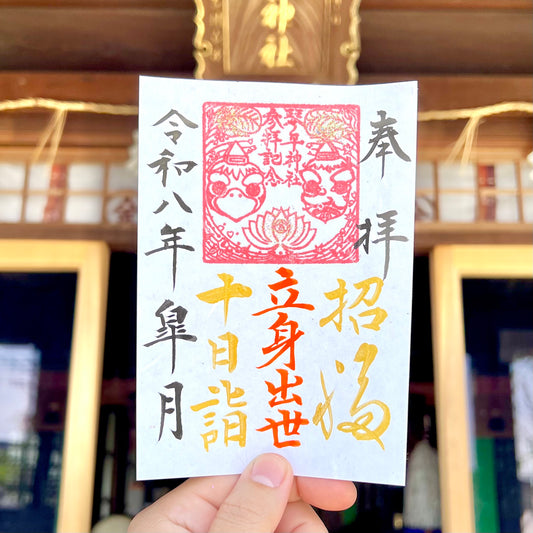 神社
奉拝
琴平神社
参拝記念
招福
立身出世
十日詣
令和八年皐月